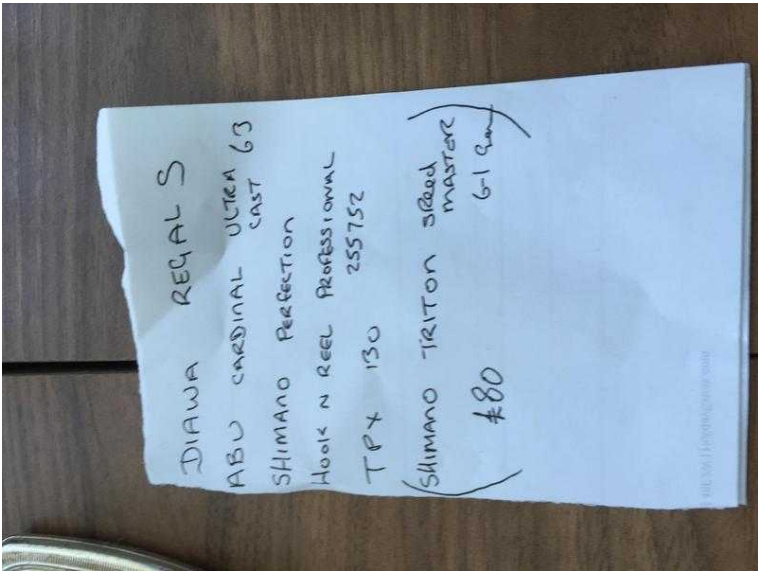 DIAWA REGAL S
ABU CARDINAL ULTRA 63
CAST
SHIMANO PERFECTION
HOOK N REEL PROFESSIONAL
TPX 130 255752
(SHIMANO TRITON SPEED
MASTER)
£80 6-1